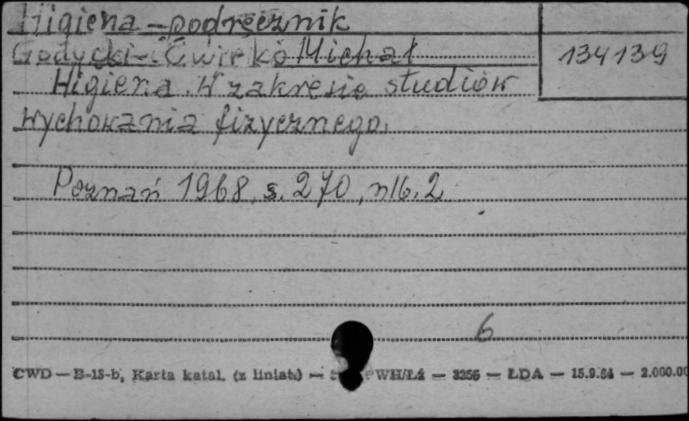 Higiena - podręcznik
134139
Godycki-Ćwirko Michał
Higiena. W zakresie studiów
wychowania fizycznego.
Poznań 1968, s. 270, nlb. 2
6
CWD — B-15-b, Karta katal. (z liniat.) — WH/Łż — 3256 — ŁDA — 15.9.64 — 2.000.00